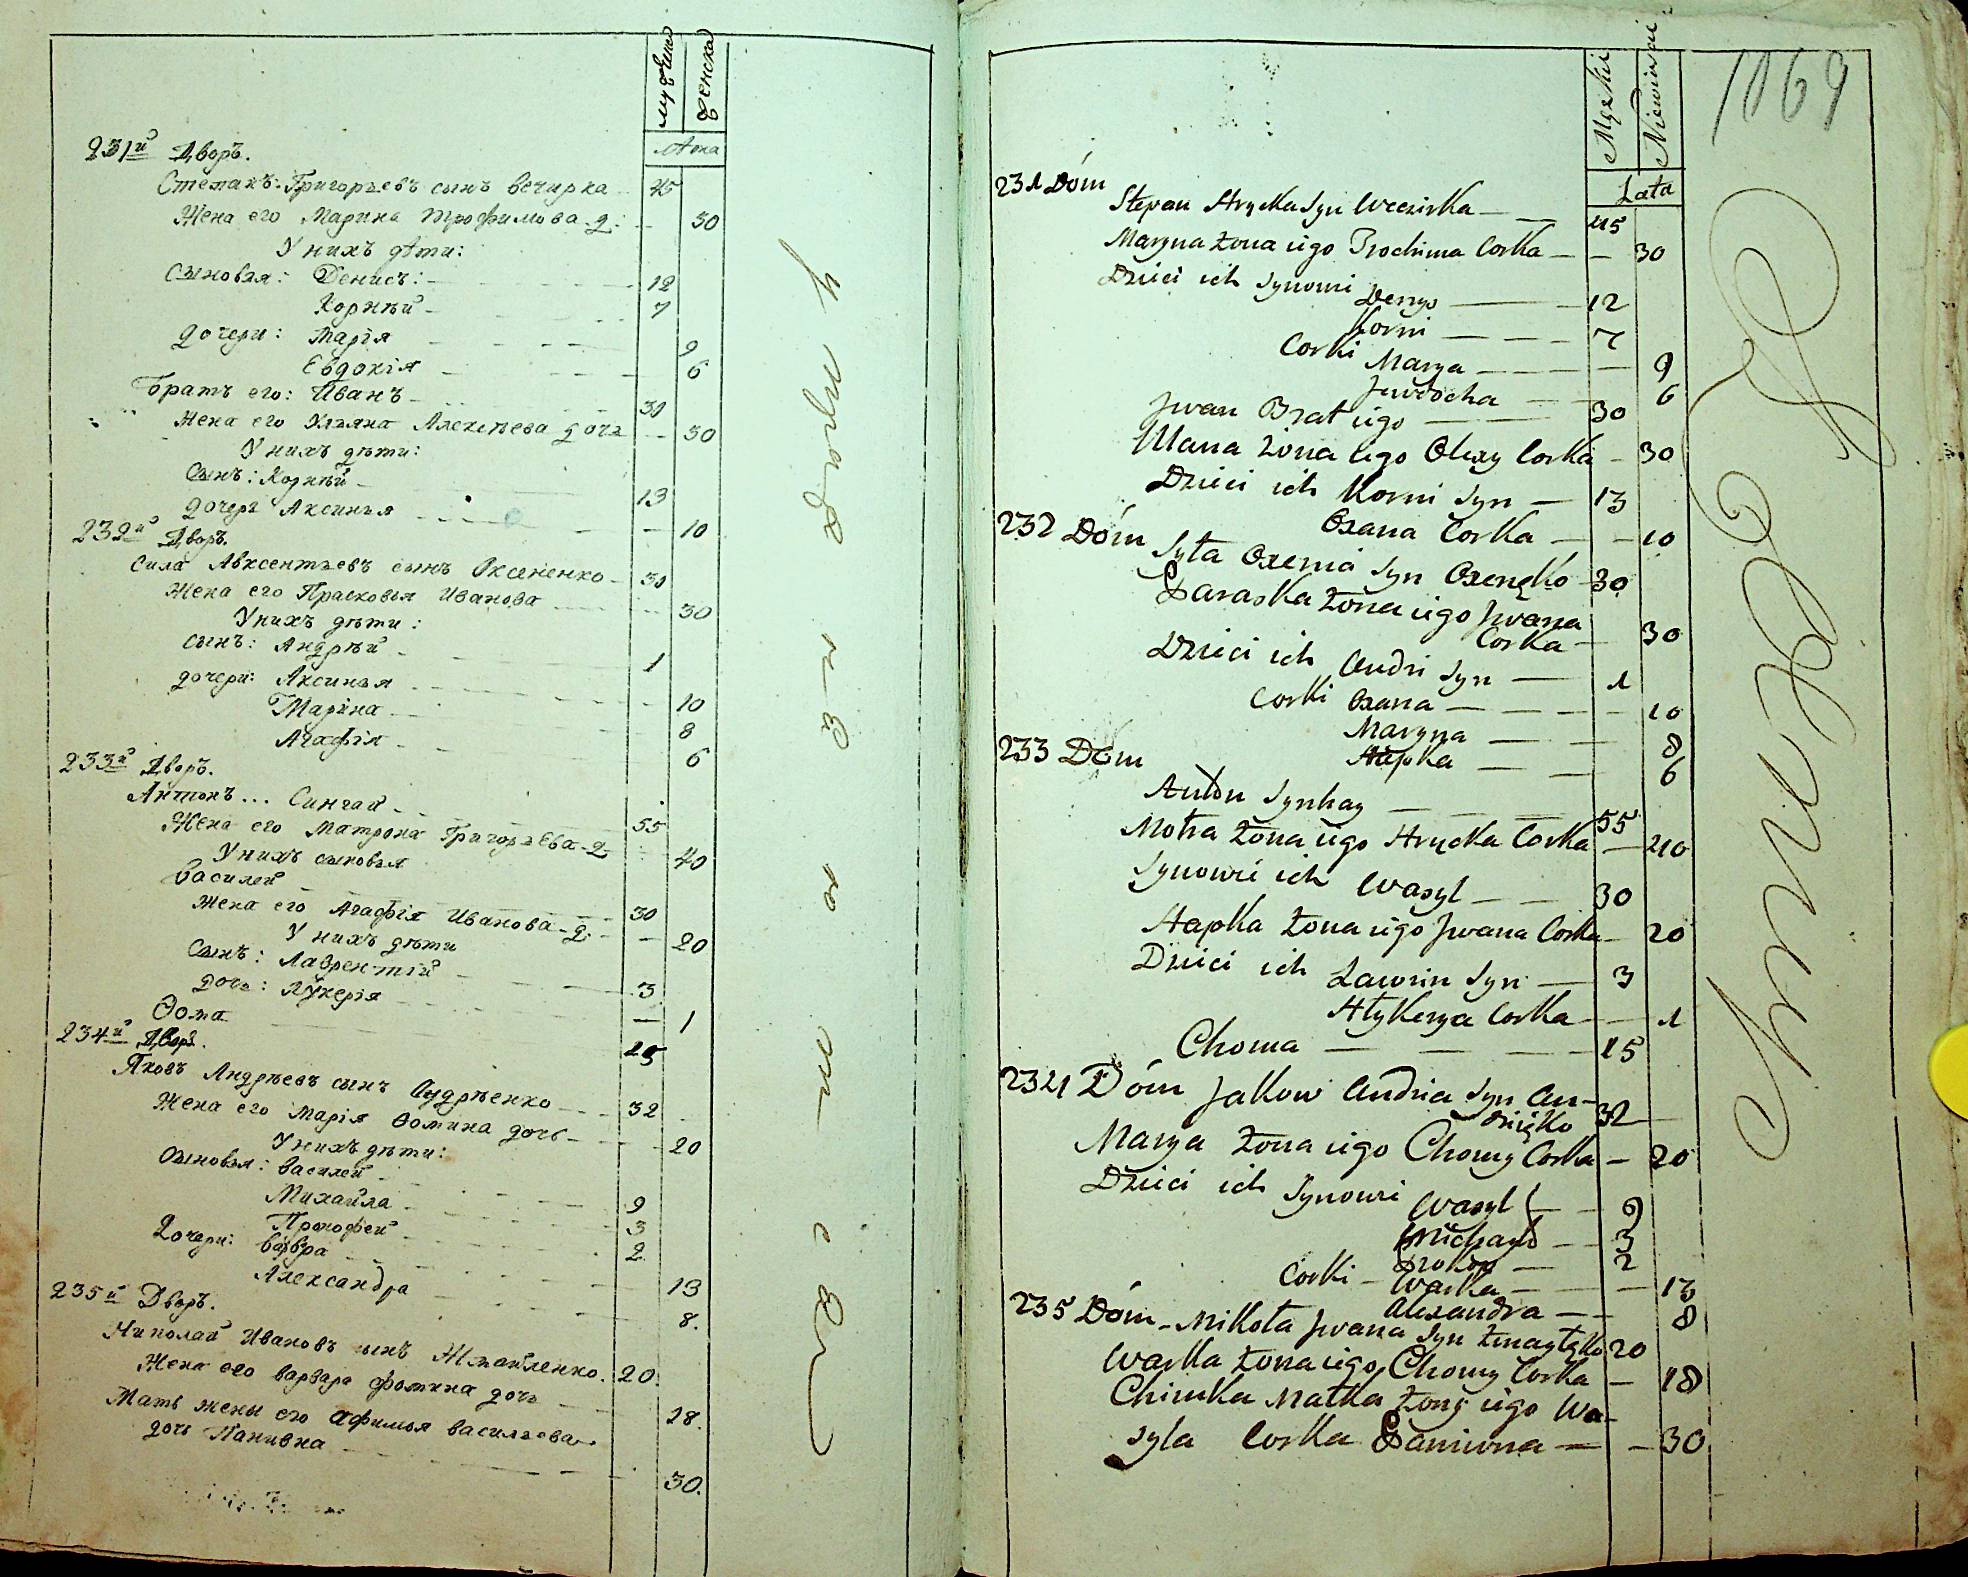 мужеска
женска
лѣта
231й Дворъ.
Степанъ Григорьевъ сынъ Вечирка 45
Жена его Марина Трофимова д: 30
У нихъ дѣти:
Сыновья: Денисъ: 12
Корнѣй 7
дочери: Марія 9
Евдокія 6
Братъ его: Иванъ 30
Жена его Ульяна Алексѣева дочь 30
У нихъ дѣти:
Сынъ: Корнѣй 13
дочерь Аксинья 10
232й Дворъ
Сила Авксентьевъ сынъ Оксененко 30
Жена его Прасковья Иванова 30
У нихъ дѣти:
сынъ: Андрѣй 1
дочери: Аксинья 10
Марина 8
Агафія 6
233й Дворъ.
Антонъ... Сингай 55
Жена его Матрона Григорьева д 40
У нихъ сыновья
Василей 30
Жена его Агафія Иванова д: 20
У нихъ дѣти
Сынъ: Лаврентій 3
дочь: Лукерія 1
Ѳома 15
234й Дворъ.
Яковъ Андрѣевъ сынъ Андрѣенко 32
Жена его Марія Ѳомина дочь 20
У нихъ дѣти:
Сыновья: Василей 9
Михайла 3
Прокофей 2
Дочери: Варвра 13
Александра 8.
235й Дворъ.
Николай Ивановъ сынъ Жмайленко. 20.
Жена его Варвара Фомина дочь 28.
Мать жены его Афимья Васильева
дочь Панивна 30.
1069
Męzkie
Niewiescie
Lata
231 Dóm
Stepan Hrycka Syn Weczirka 45
Maryna Żona iego Trochima Corka 30
Dzieci ich Synowie Denys 12
Korni 7
Corki Marya 9
Juwdocha 6
Jwan Brat iego 30
Ulana Żona iego Olexy Corka 30
Dzieci ich Korni Syn 13
Oxana Corka 10
232 Dóm
Syła Oxenia Syn Oxenęko 30
Paraska Żona iego Jwana
Corka 30
Dzieci ich Andri Syn 1
Corki Oxana 10
Maryna 8
Hapka 6
233 Dóm
Anton Synhay 55
Motra Żona iego Hrycka Corka 40
Synowie ich Wasyl 30
Hapka Żona iego Jwana Corka 20
Dzieci ich Lawrin Syn 3
Hłykerya Corka 1
Choma 15
234 Dóm Jakow Andria Syn An-
driięko 32
Marya Żona iego Chomy Corka 20
Dzieci ich Synowie Wasyl 9
Michayło 3
Prokop 2
Corki Warka 13
Alexandra 8
235 Dóm Mikoła Jwana Syn Żmayłęko 20
Warka Żona iego Chomy Corka 18
Chimka Matka Żony iego Wa-
syla Corka Paniwna 30